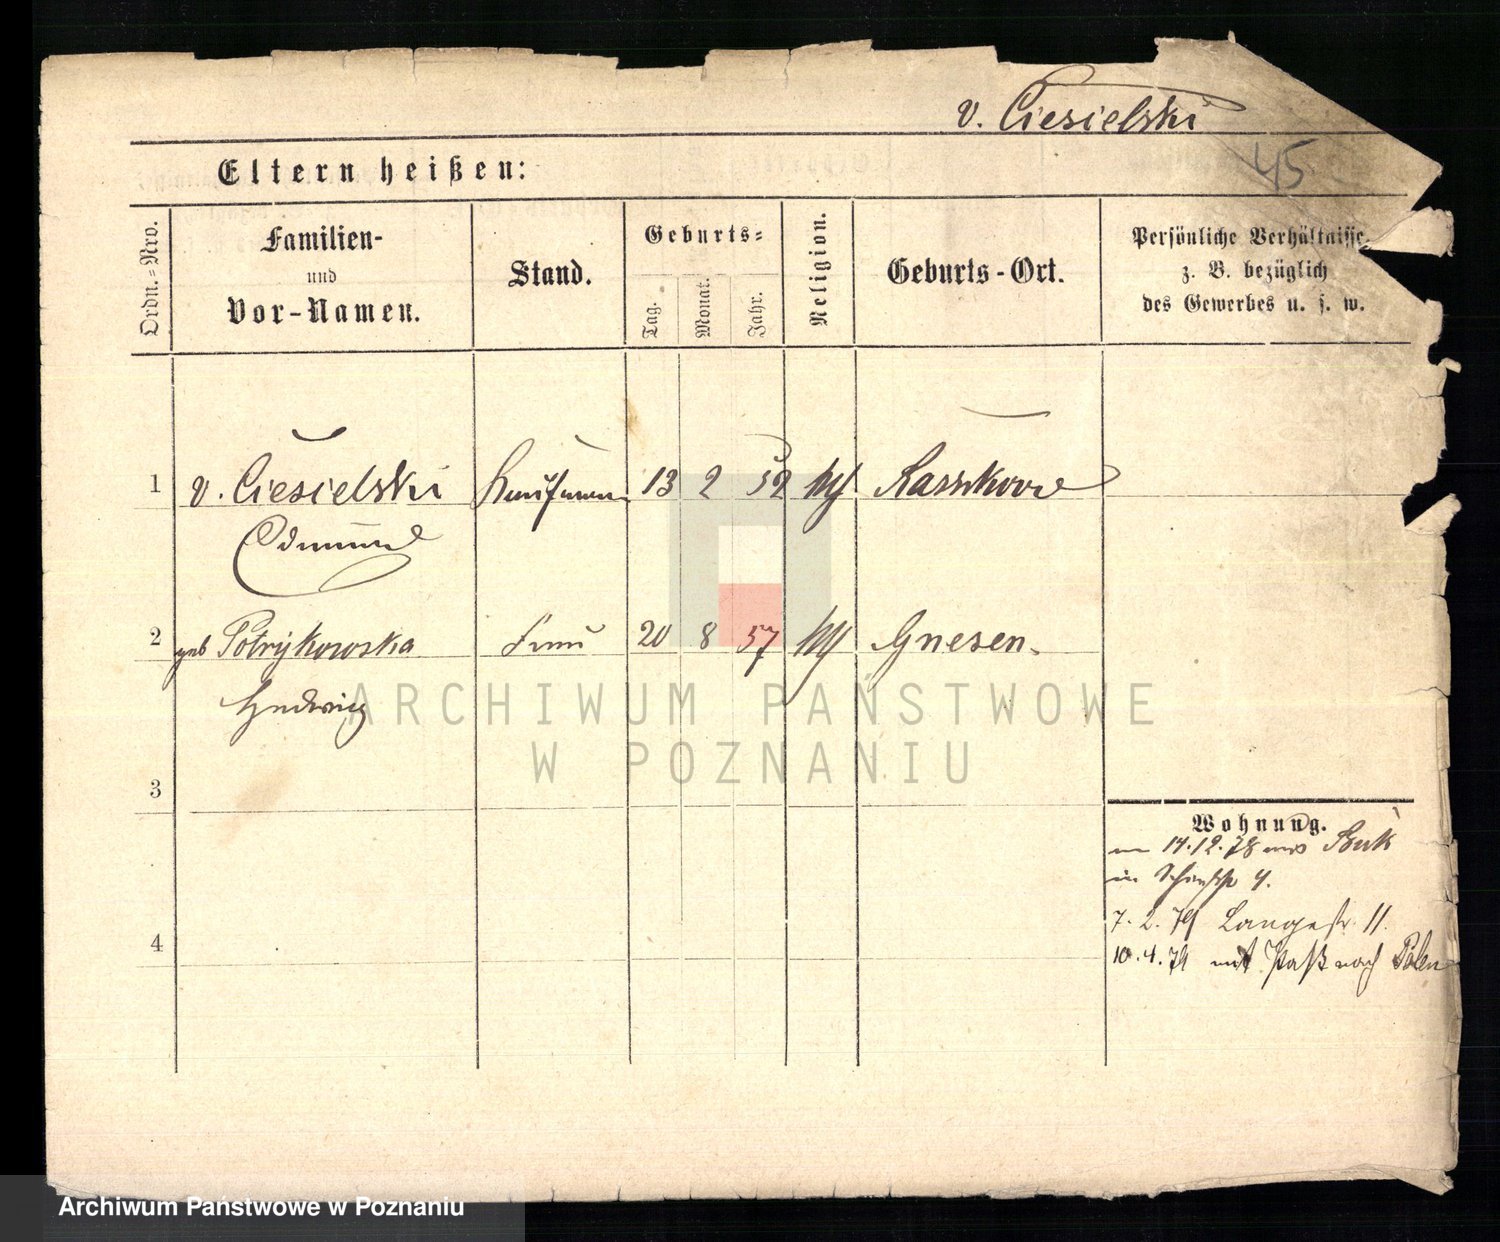 v. Ciesielski
45
Eltern heißen:
Ordn.=Nro.
Familien-
und
Vor-Namen.
Stand.
Geburts=
Tag.
Monat.
Jahr.
Religion.
Geburts-Ort.
Persönliche Verhältnisse,
z. B. bezüglich
des Gewerbes u. s. w.
1 v. Ciesielski Kaufmann 13 2 52 kth
Edmund
2 geb Potrykowska Frau 20 8 57 kth Gnesen.
Hedwig
ARCHIWUM PAŃSTWOWE
W POZNANIU
3
Wohnung.
14.12.78 aus Buk
in 4.
4
7.2.79 Langestr. 11.
10.4.79 mit Paß nach Polen
Archiwum Państwowe w Poznaniu